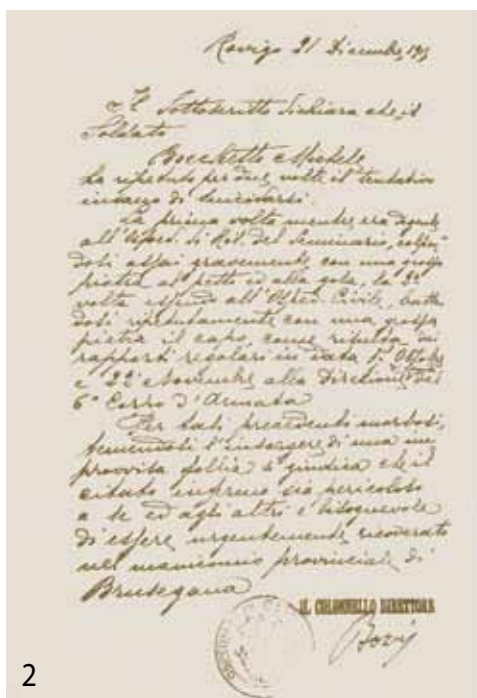 Rovigo 21 Dicembre, 191
Il Sottoscritto dichiara che, il
Soldato
Bocchetto Michele
ha ripetuto per due volte il tentativo
insano di suicidarsi.
La prima volta mentre era degente
all' Osped. di Ris. del Seminario, colpen¬
dosi assai gravemente con una grossa
pietra al petto ed alla gola, la 2ª
volta essendo all' Osped. Civile, batten
dosi ripetutamente con una grossa
pietra il capo, come risulta dai
rapporti regolari in data 5 Ottobre
e 22 Novembre alla Direzione del
6° Corpo d'Armata
Per tali precedenti morbosi,
temendosi l'insorgere di una im
provvisa follia si giudica che il
citato infermo sia pericoloso
a se ed agli altri e bisognevole
di essere urgentemente ricoverato
nel manicomio provinciale di
Brusegana
IL COLONNELLO DIRETTORE
2